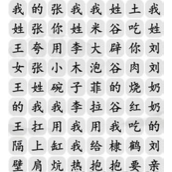 我的张我我姓土我
姓张你姓米谷吃姓
王夸用李大辟你刘
女张小木泡谷肉刘
王姓碗子菲的烧奶
的我我李拉谷红奶
王扛用我用我吃的
隔上缸我给棣鹤刘
壁肩坑热抱抱要亲